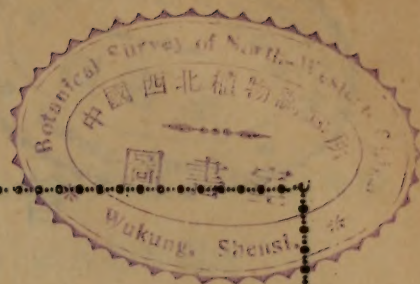 Botanical Survey of North-Western China
中國西北植物調查所
圖書
* Wukung, Shensi. *